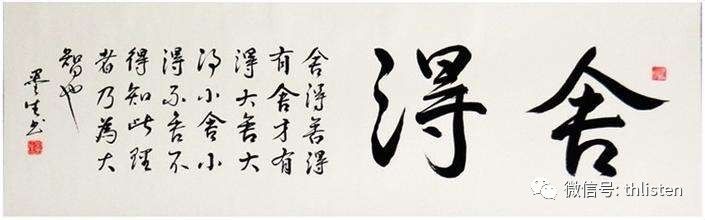 舍得
舍得舍得
有舍才有
得大舍大
得小舍小
得不舍不
得知此理
者乃為大
智也
墨生书
微信号: thlisten